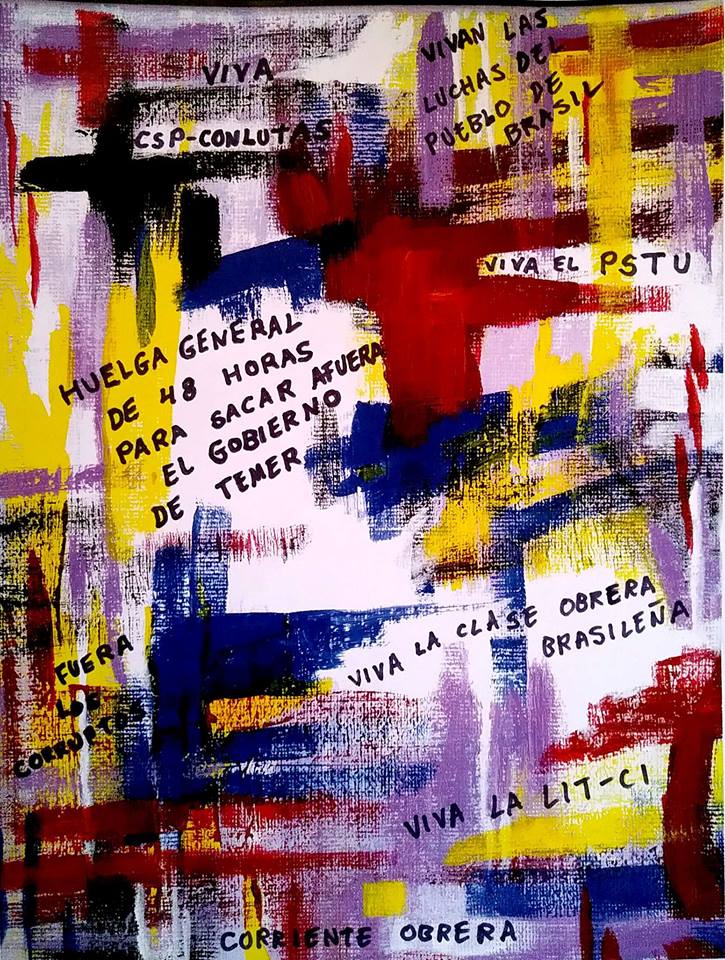 VIVA
CSP-CONLUTAS
VIVAN LAS
LUCHAS DEL
PUEBLO DE
BRASIL
VIVA EL PSTU
HUELGA GENERAL
DE 48 HORAS
PARA SACAR AFUERA
EL GOBIERNO
DE TEMER
VIVA LA CLASE OBRERA
BRASILEÑA
FUERA
LOS
CORRUPTOS
VIVA LA LIT-CI
CORRIENTE OBRERA